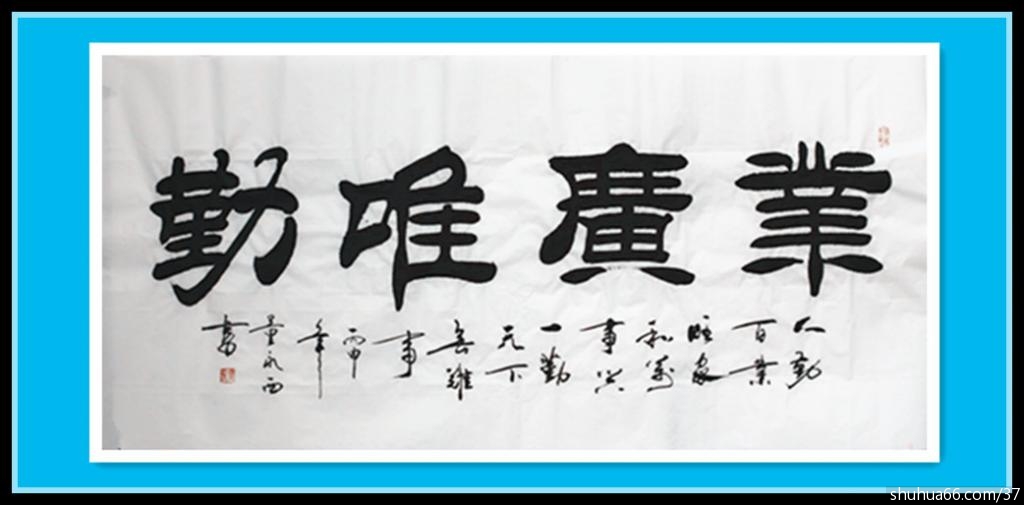 業廣唯勤
人勤
百業
旺家
和萬
事興
一勤
天下
無難
事
丙申
年
永西
書
shuhua66.com/37